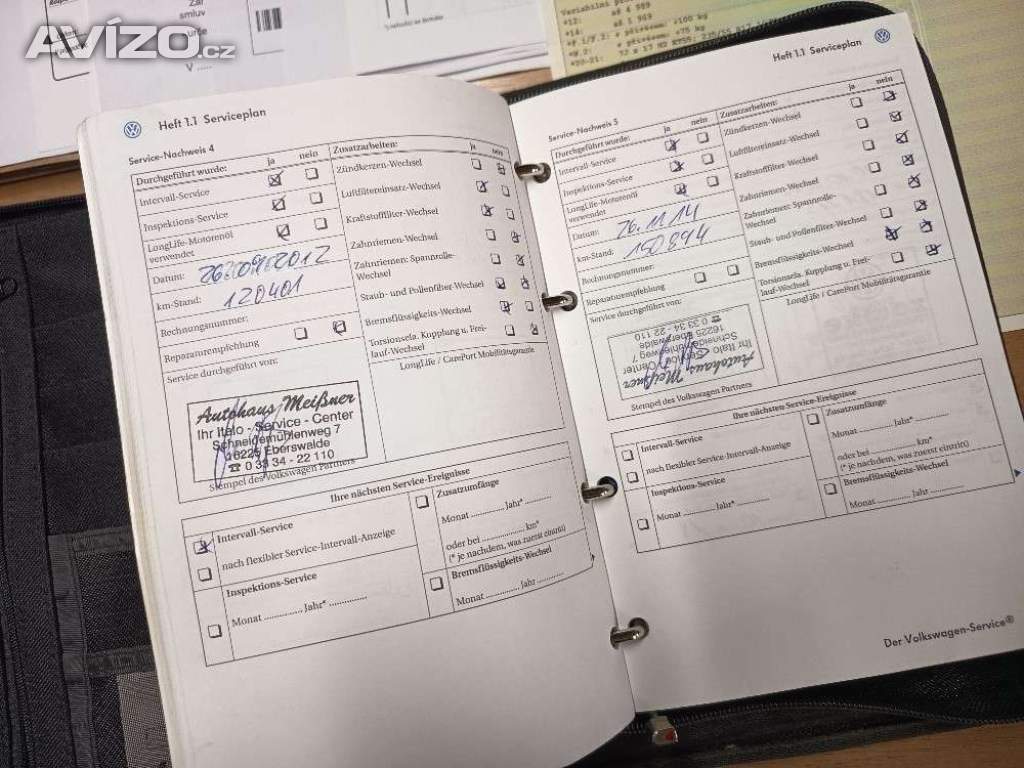 AVÍZO.cz
smluv
Variabilní
Heft 1.1 Serviceplan
Service-Nachweis 4
Durchgeführt wurde: ja nein
Intervall-Service
Inspektions-Service
LongLife-Motorenöl
verwendet
Datum: 26.09.2012
km-Stand: 120401
Rechnungsnummer:
Reparaturempfehlung
Service durchgeführt von:
Autohaus Meißner
Ihr Italo - Service - Center
Schneidemühlenweg 7
16225 Eberswalde
☎ 0 33 34 - 22 110
Stempel des Volkswagen Partners
Zusatzarbeiten: ja nein
Zündkerzen-Wechsel
Luftfiltereinsatz-Wechsel
Kraftstofffilter-Wechsel
Zahnriemen-Wechsel
Zahnriemen: Spannrolle-
Wechsel
Staub- und Pollenfilter-Wechsel
Bremsflüssigkeits-Wechsel
Torsionsela. Kupplung u. Frei-
lauf-Wechsel
LongLife / CarePort Mobilitätsgarantie
Ihre nächsten Service-Ereignisse
Intervall-Service
nach flexibler Service-Intervall-Anzeige
Inspektions-Service
Monat ............... Jahr* ...............
Zusatzumfänge
Monat ............... Jahr* ...............
oder bei ............... km*
(* je nachdem, was zuerst eintritt)
Bremsflüssigkeits-Wechsel
Monat ............... Jahr ...............
Heft 1.1 Serviceplan
Service-Nachweis 5
Durchgeführt wurde: ja nein
Intervall-Service
Inspektions-Service
LongLife-Motorenöl
verwendet
Datum: 26.11.14
km-Stand: 150894
Rechnungsnummer:
Reparaturempfehlung
Service durchgeführt von:
Autohaus Meißner
Ihr Italo - Service - Center
Schneidemühlenweg 7
16225 Eberswalde
☎ 0 33 34 - 22 110
Stempel des Volkswagen Partners
Zusatzarbeiten: ja nein
Zündkerzen-Wechsel
Luftfiltereinsatz-Wechsel
Kraftstofffilter-Wechsel
Zahnriemen-Wechsel
Zahnriemen: Spannrolle-
Wechsel
Staub- und Pollenfilter-Wechsel
Bremsflüssigkeits-Wechsel
Torsionsela. Kupplung u. Frei-
lauf-Wechsel
LongLife / CarePort Mobilitätsgarantie
Ihre nächsten Service-Ereignisse
Intervall-Service
nach flexibler Service-Intervall-Anzeige
Inspektions-Service
Monat ............... Jahr* ...............
Zusatzumfänge
Monat ............... Jahr* ...............
oder bei ............... km*
(* je nachdem, was zuerst eintritt)
Bremsflüssigkeits-Wechsel
Monat ............... Jahr ...............
Der Volkswagen-Service®